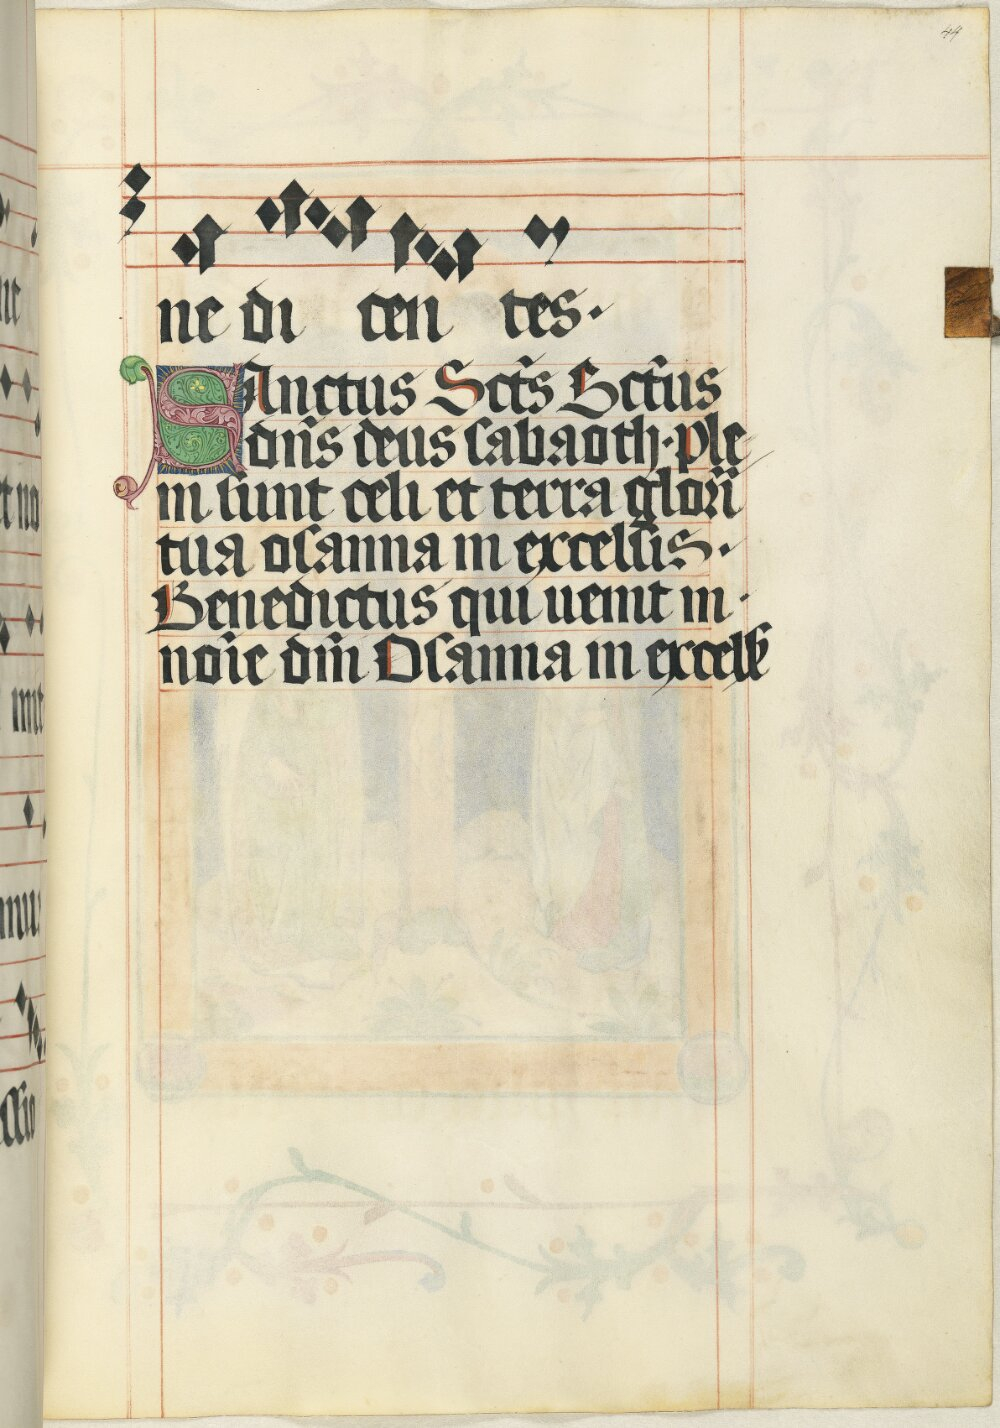 44
ne di cen tes.
SAnctus Sct̄s Sctūs
dn̄s deus sabaoth. ple
ni sunt celi et terra glorī
tua osanna in excelsis.
Benedictus qui uenit in.
noīe dn̄i Osanna in excels